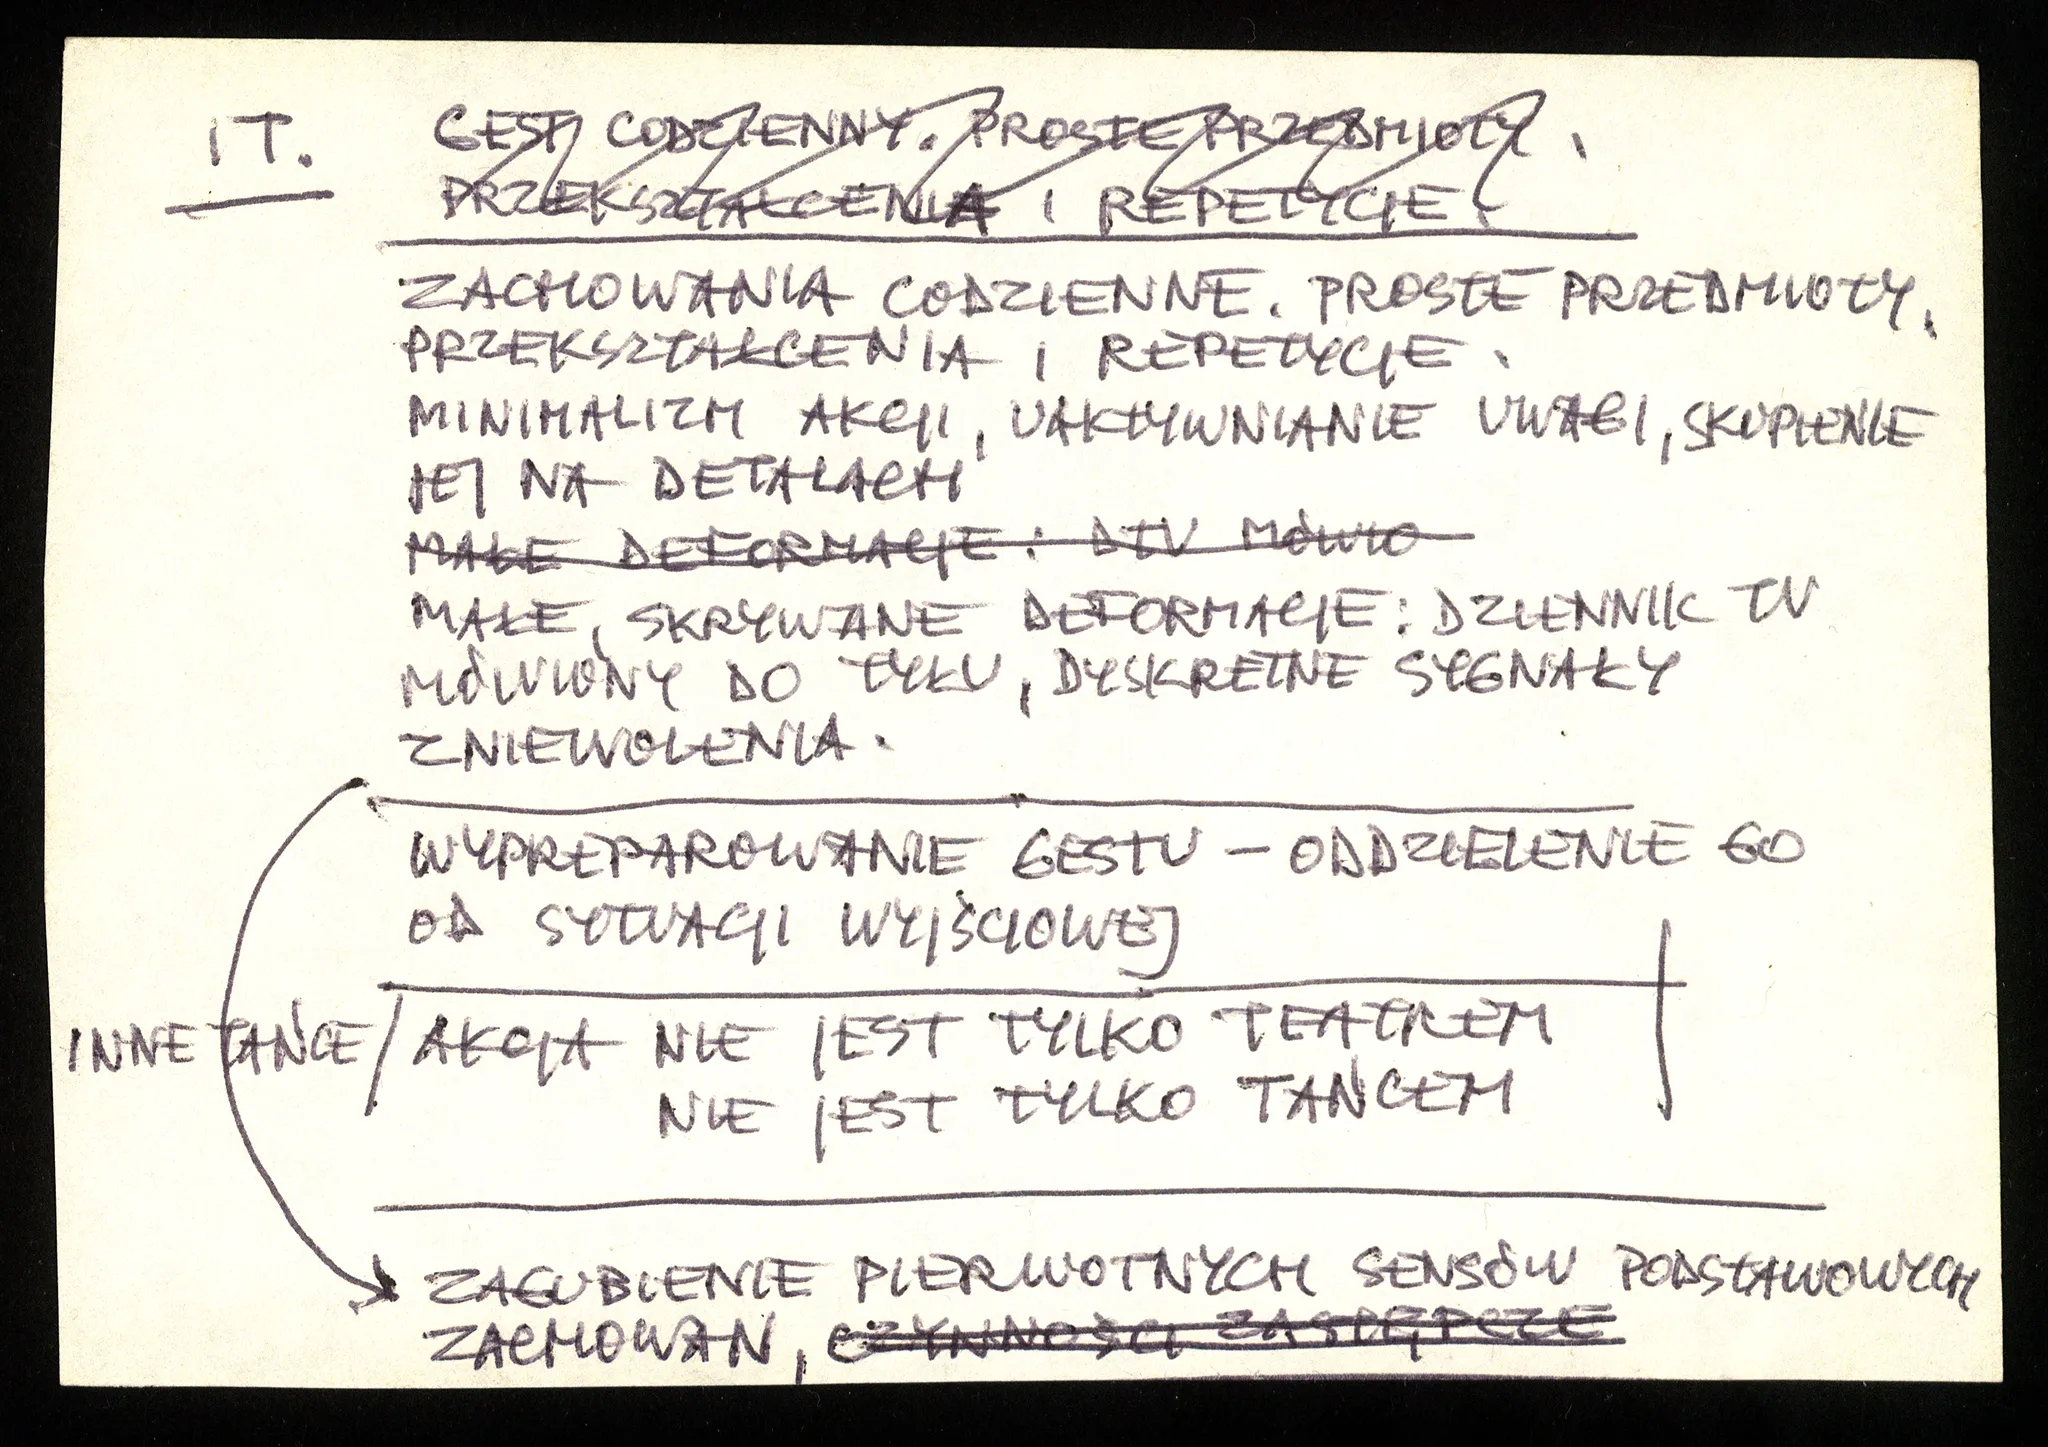 IT.
GEST CODZIENNY. PROSTE PRZEDMIOTY.
PRZEKSZTAŁCENIA I REPETYCJE.
ZACHOWANIA CODZIENNE. PROSTE PRZEDMIOTY.
PRZEKSZTAŁCENIA I REPETYCJE.
MINIMALIZM AKCJI, UAKTYWNIANIE UWAGI, SKUPIENIE
JEJ NA DETALACH
MAŁE DEFORMACJE: DTV MÓWIO
MAŁE, SKRYWANE DEFORMACJE: DZIENNIK TV
MÓWIONY DO TYŁU, DYSKRETNE SYGNAŁY
ZNIEWOLENIA.
WYPREPAROWANIE GESTU – ODDZIELENIE GO
OD SYTUACJI WYJŚCIOWEJ
INNE TAŃCE / AKCJA NIE JEST TYLKO TEATREM
NIE JEST TYLKO TAŃCEM
ZAGUBIENIE PIERWOTNYCH SENSÓW PODSTAWOWYCH
ZACHOWAN, CZYNNOŚCI ZASTĘPCZE